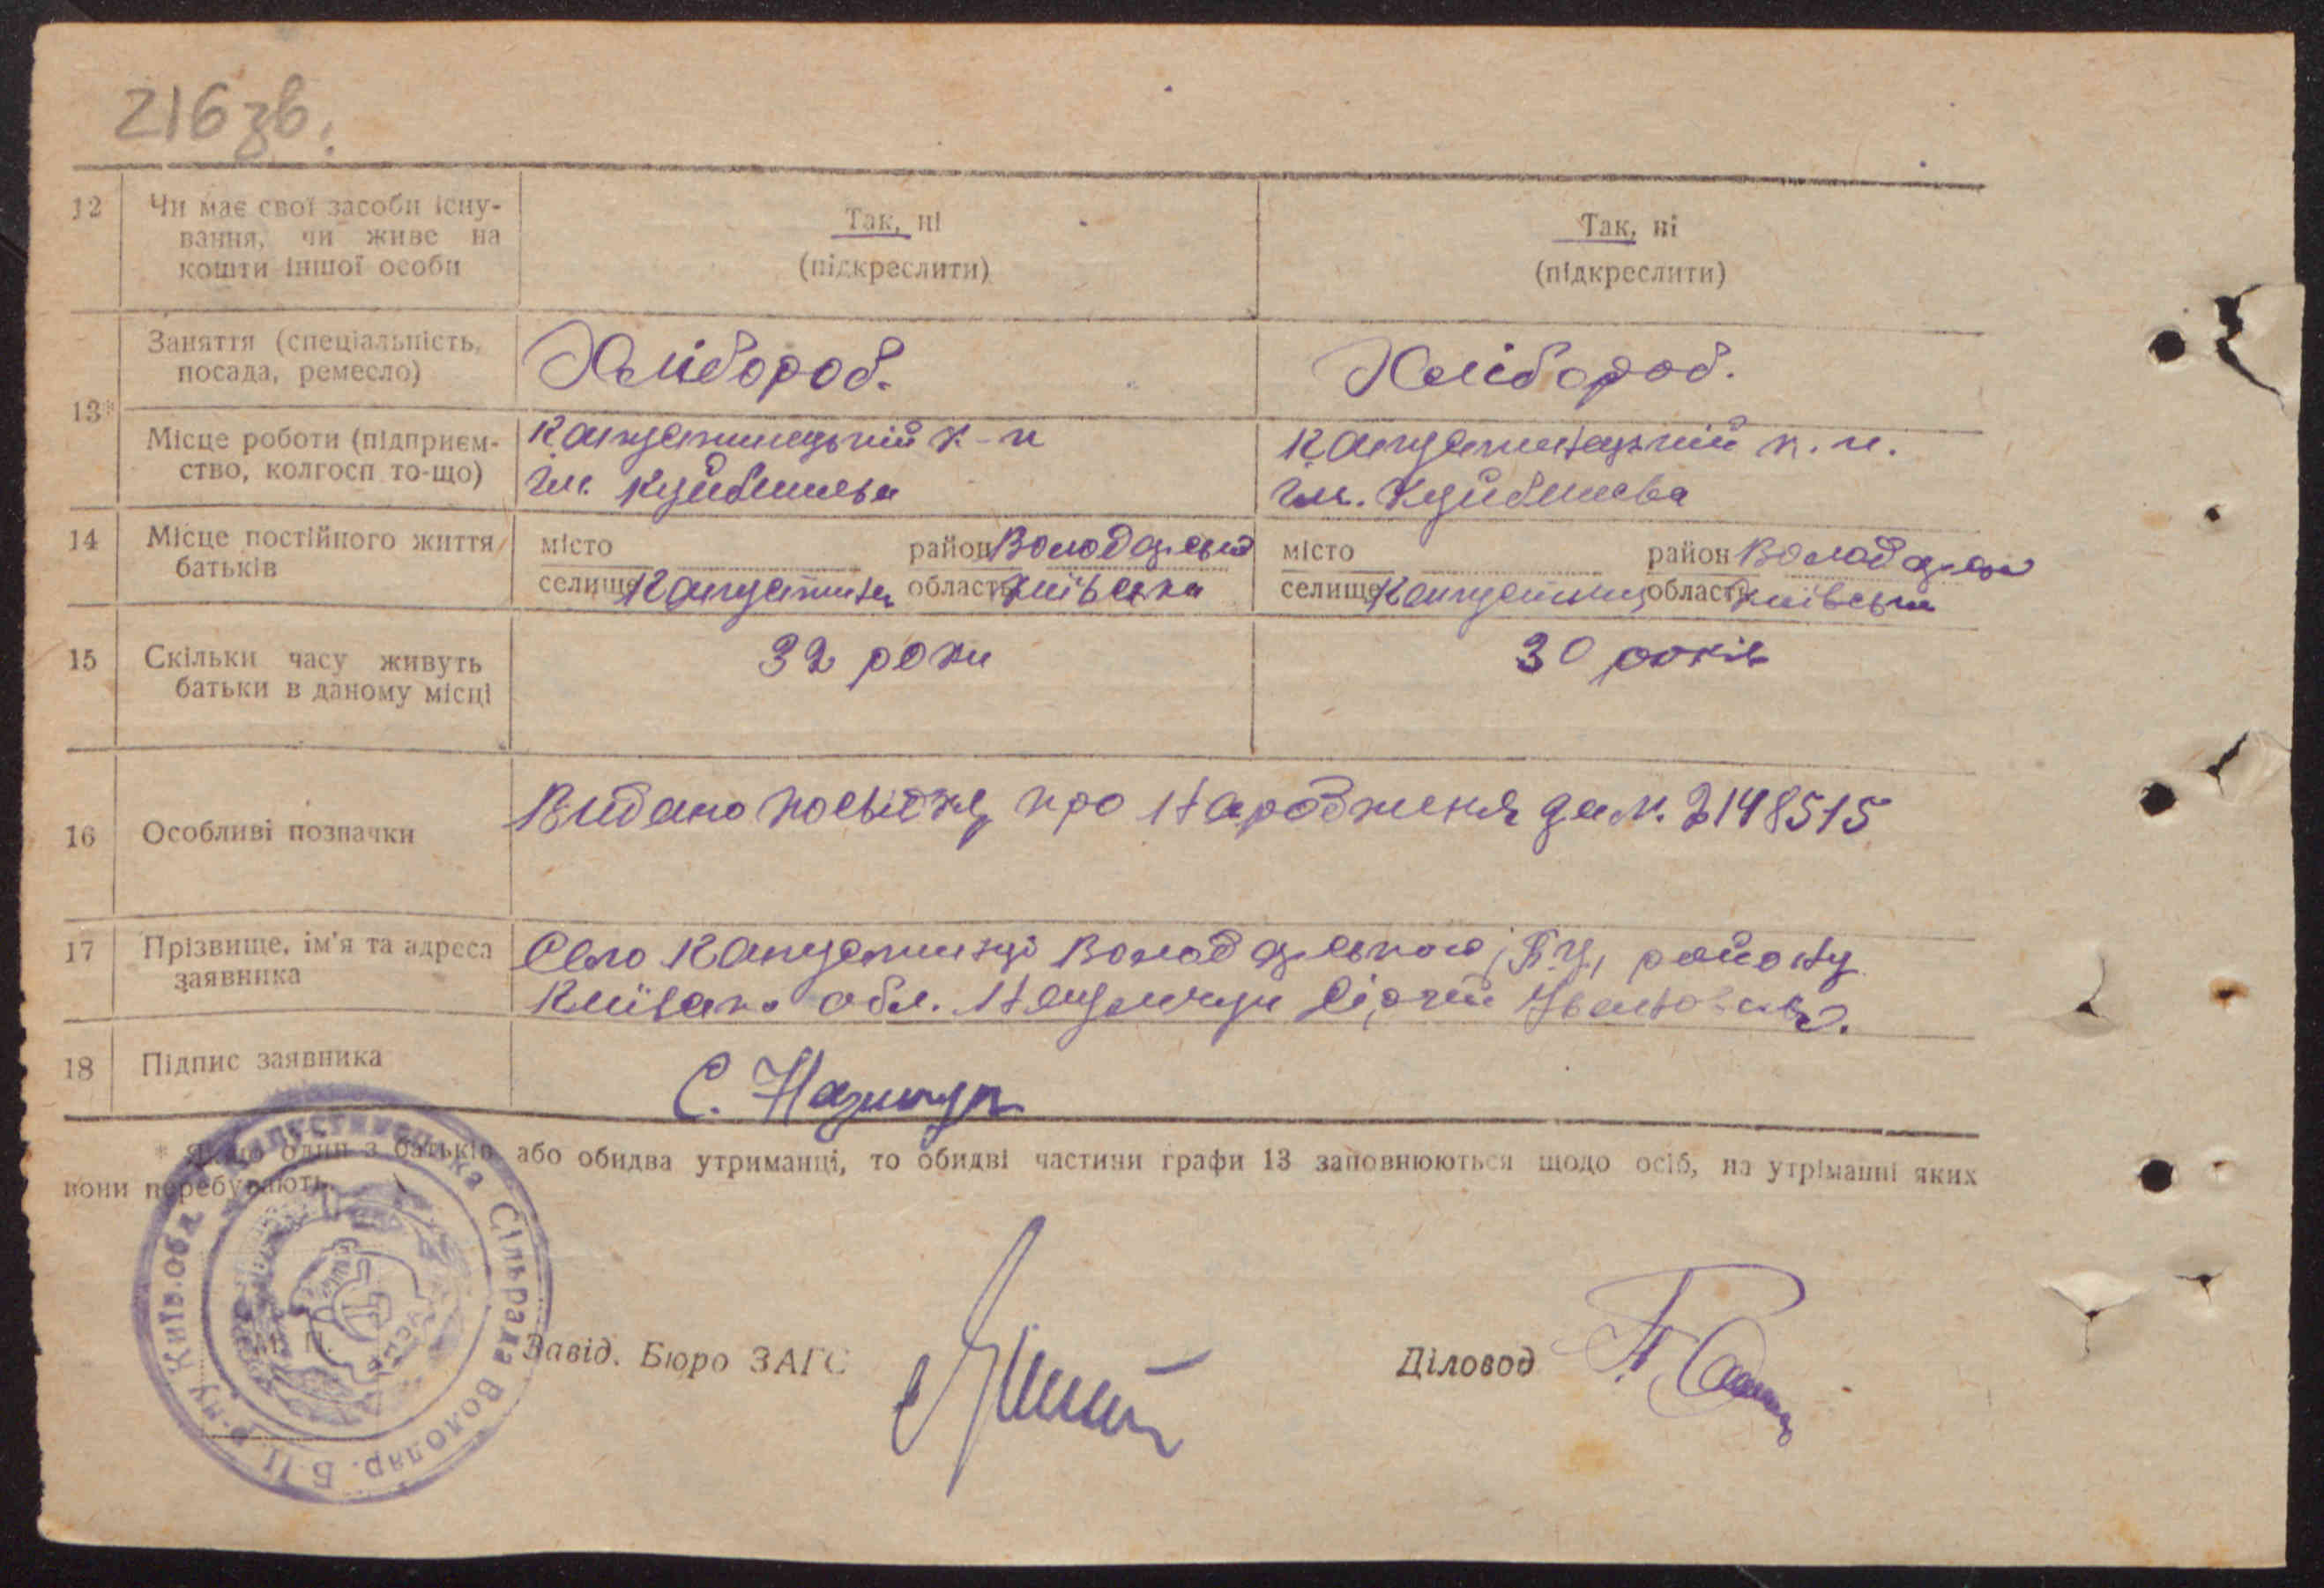 216 зв.
12 Чи має свої засоби існу-
вання, чи живе на
кошти іншої особи
Так, ні
(підкреслити)
Так, ні
(підкреслити)
13*
Заняття (спеціальність,
посада, ремесло)
Хлібороб.
Хлібороб.
Місце роботи (підприєм-
ство, колгосп то-що)
Капустинецький к-п
Ім. Куйбишева
Капустинецький к.п.
Ім. Куйбишева
14 Місце постійного життя
батьків
місто район Володарськ
селище Капустинці область Київська
місто район Володарськ
селище Капустинці область Київська
15 Скільки часу живуть
батьки в даному місці
32 роки
30 років
16 Особливі позначки
Видано посвідку про народження за №. 2148515
17 Прізвище, ім'я та адреса
заявника
Село Капустинці Володарського, Б.Ц, району
Київсько обл. Сергій Іванович.
18 Підпис заявника
С.
* Якщо один з батьків або обидва утриманці, то обидві частини графи 13 заповнюються щодо осіб, на утріманні яких
вони перебувають.
Капустинська Сільрада Володар. Б Ц р-ну Київ. обл.
УСРР
М. П.
Завід. Бюро ЗАГС
Діловод